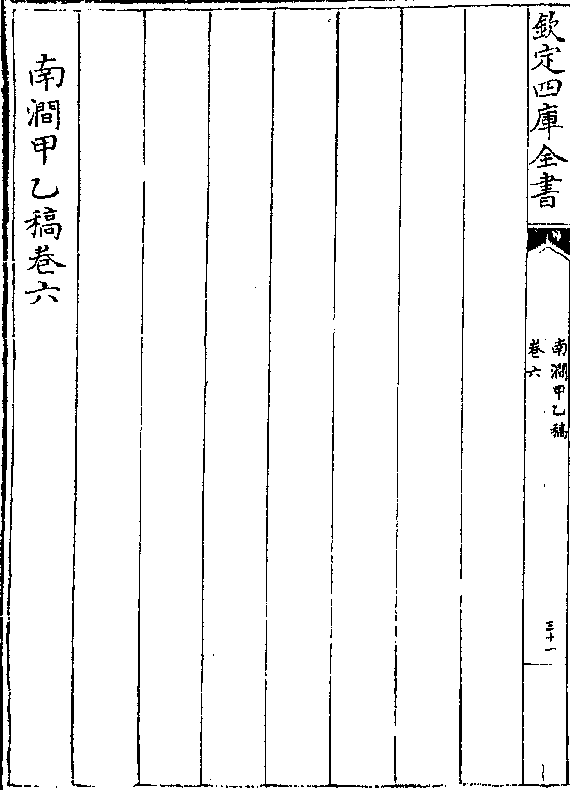 欽定四庫全書
南澗甲乙稿
卷六
三十一
南澗甲乙稿卷六